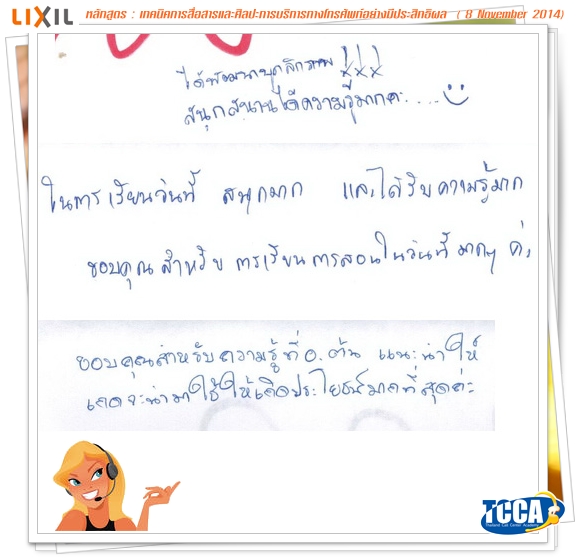 LIXIL หลักสูตร : เทคนิคการสื่อสารและศิลปะการบริการทางโทรศัพท์อย่างมีประสิทธิผล ( 8 November 2014)
ได้พัฒนาบุคลิกภาพ !!!
สนุกสนานได้ความรู้มากคะ.... :)
ในการเรียนวันนี้ สนุกมาก และได้รับความรู้มาก
ขอบคุณสำหรับการเรียนการสอนในวันนี้มากๆ ค่ะ
ขอบคุณสำหรับความรู้ที่ อ.ต้น แนะนำให้
และจะนำมาใช้ให้เกิดประโยชน์มากที่สุดค่ะ
TCCA
Thailand Call Center Academy